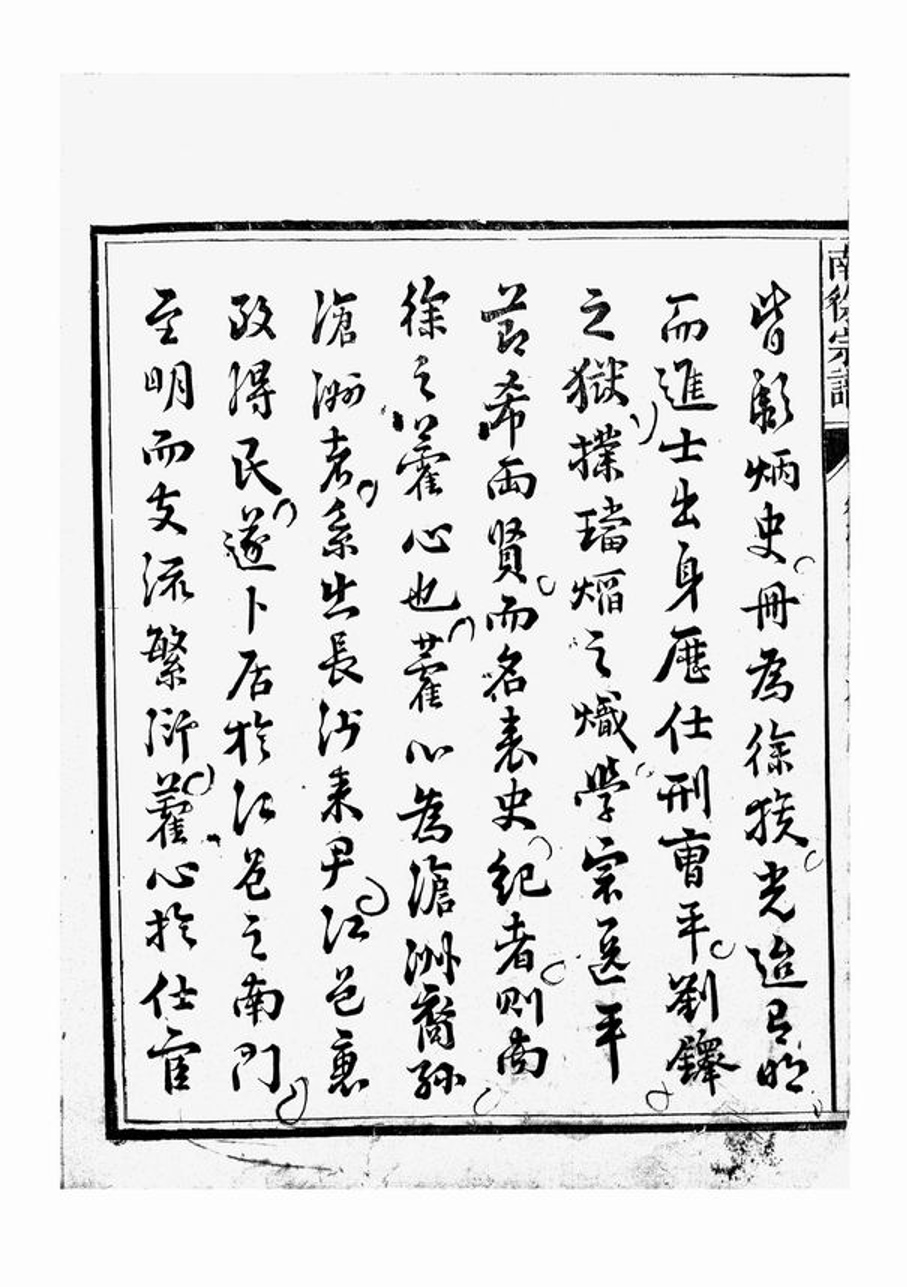 南徐宗譜
皆彪炳史冊為徐族光迨有明
而進士出身歷仕刑曹平劉鐸
之獄撲璫熖之熾學宗延平
節希兩賢而名表史紀者則南
徐之藿心也藿心為滄洲裔孫
滄洲者系出長沙來尹江邑惠
政得民遂卜居於江邑之南門
至明而支流繁衍藿心於仕宦